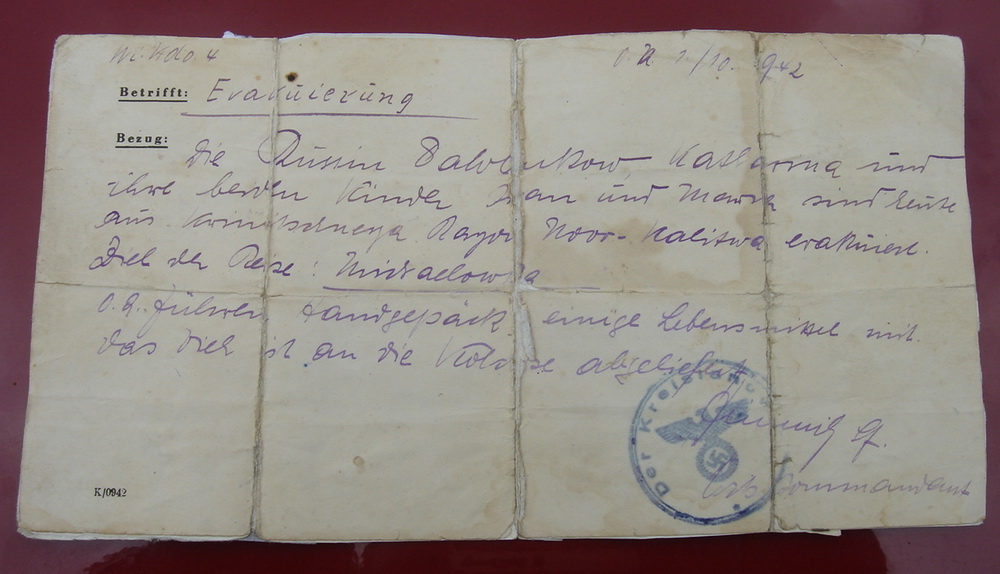 Wi. Kdo. 4
O U 1/10. 942
Betrifft: Evakuierung
Bezug:
Die Russin Katharina und
ihre beiden Kinder Iwan und Maria sind heute
aus Rayon Noor-Kalitwa evakuiert.
Ziel der Reise: Michaelowka
O. g. führen Handgepäck einige Lebensmittel mit.
das Vieh ist an die abgeliefert
Der Kreis
Gf.
Ortskommandant
K/0942